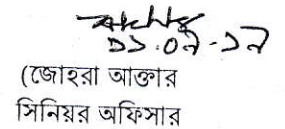 ১১.০৭-১৭
(জোহরা আক্তার
সিনিয়র অফিসার